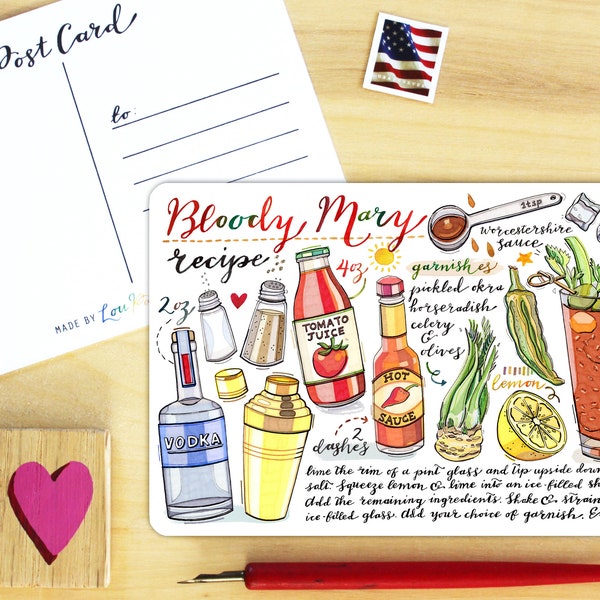 Post Card
to:
MADE BY
Bloody Mary
recipe
2oz
4oz
TOMATO
JUICE
VODKA
HOT
SAUCE
2
dashes
1tsp
Worcestershire
sauce
garnishes
pickled okra
horseradish
celery
&
olives
lemon
lime the rim of a pint glass and tip upside down
salt. Squeeze lemon & lime into an ice-filled sh
Add the remaining ingredients. Shake & strain
ice-filled glass. Add your choice of garnish. E